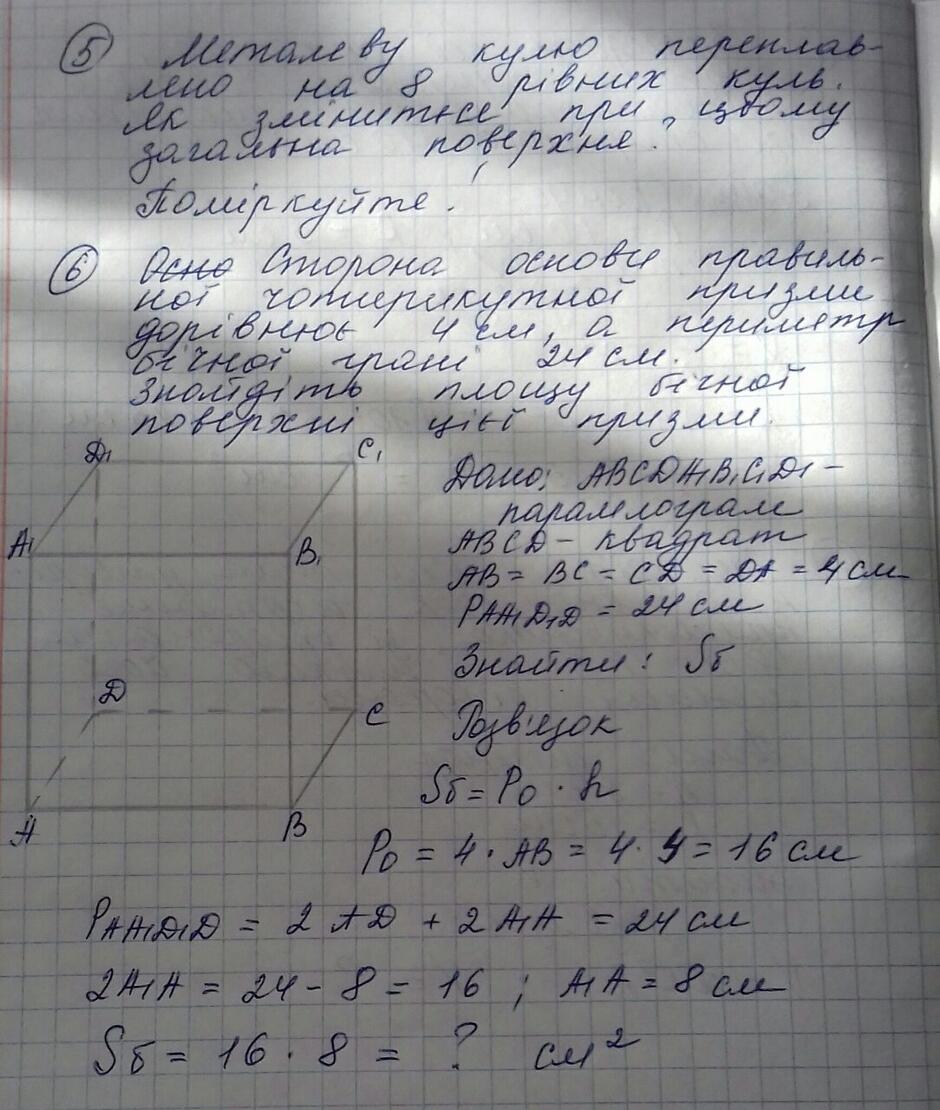 5 Металеву кулю переплав-
лено на 8 рівних куль.
Як зміниться при цьому
загальна поверхня?
Поміркуйте!
6 Осно Сторона основи правиль-
ної чотирикутної призми
дорівнює 4 см, а периметр
бічної грані 24 см.
Знайдіть площу бічної
поверхні цієї призми.
D₁ C₁
Дано: ABCDA₁B₁C₁D₁ -
паралелограм
A₁ B₁
ABCD - квадрат
AB = BC = CD = DA = 4 см
PAA₁D₁D = 24 см
Знайти: Sб
D C
Розв'язок
Sб = Pо · h
A B
Pо = 4 · AB = 4 · 4 = 16 см
PAA₁D₁D = 2 AD + 2 A₁A = 24 см
2A₁A = 24 - 8 = 16 ; A₁A = 8 см
Sб = 16 · 8 = ? см²